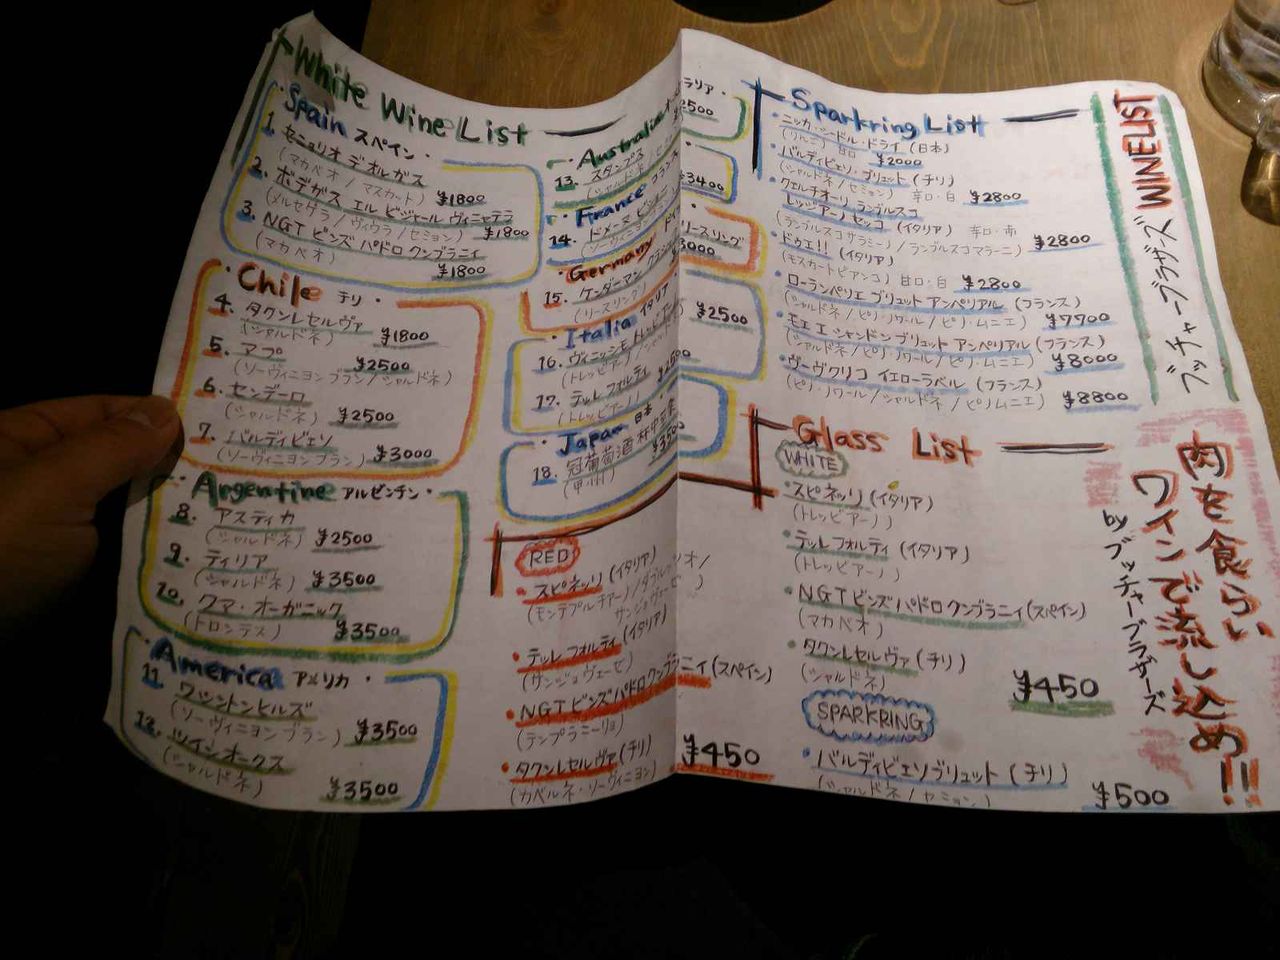 White Wine List
Spain スペイン
1. セニョリオ デ オルガス
(マカベオ / マスカット) ¥1800
2. ボデガス エル ビジャール ヴィニャテラ
(メルセゲラ / ヴィウラ / セミヨン) ¥1800
3. NGT ビンズ パドロ クンブラニィ
(マカベオ)
¥1800
Chile チリ
4. タクン レセルヴァ
(シャルドネ) ¥1800
5. マプ ¥2500
(ソーヴィニヨン ブラン / シャルドネ)
6. センデーロ
(シャルドネ) ¥2500
7. バルディビエソ
(ソーヴィニヨン ブラン) ¥3000
Argentine アルゼンチン
8. アスティカ
(シャルドネ) ¥2500
9. ティリア
(シャルドネ) ¥3500
10. クマ・オーガニック
(トロンテス) ¥3500
America アメリカ
11. ワシントンヒルズ
(ソーヴィニヨン ブラン) ¥3500
12. ツインオークス
(シャルドネ) ¥3500
Australia
13. スタンプス
(シャルドネ /
France フランス
14. ドメーヌ
¥3400
Germany
15. ケンダーマン
(リースリング)
Italia イタリア
16.
(トレッビアーノ /
¥2500
17. テッレ フォルティ
(トレッビアーノ)
Japan 日本
18. 冠葡萄酒
(甲州)
RED
・スピネッリ (イタリア)
(モンテプルチアーノ /
・テッレ フォルティ (イタリア)
(サンジョヴェーゼ)
・NGT ビンズ パドロ クンブラニィ (スペイン)
(テンプラニーリョ)
・タクン レセルヴァ (チリ)
(カベルネ・ソーヴィニヨン)
¥450
Sparkring List
・ニッカ シードル・ドライ (日本)
(りんご) 甘口 ¥2000
・バルディビエソ ブリュット (チリ)
(シャルドネ / セミヨン) 辛口・白 ¥2800
・クェルチオーリ ランブルスコ
レッジアーノ セッコ (イタリア) 辛口・赤
(ランブルスコサラミーノ / ランブルスコマラーニ) ¥2800
・ドゥエ!! (イタリア)
(モスカートビアンコ) 甘口・白 ¥2800
・ローランペリエ ブリュット アンペリアル (フランス)
(シャルドネ / ピノ・ノワール / ピノ・ムニエ) ¥7700
・モエ エ シャンドン ブリュット アンペリアル (フランス)
(シャルドネ / ピノ・ノワール / ピノ・ムニエ) ¥8000
・ヴーヴクリコ イエローラベル (フランス)
(ピノ・ノワール / シャルドネ / ピノムニエ) ¥8800
Glass List
WHITE
・スピネッリ (イタリア)
(トレッビアーノ)
・テッレ フォルティ (イタリア)
(トレッビアーノ)
・NGT ビンズ パドロ クンブラニィ (スペイン)
(マカベオ)
・タクン レセルヴァ (チリ)
(シャルドネ)
¥450
SPARKRING
・バルディビエソブリュット (チリ)
(シャルドネ / セミヨン)
¥500
ブッチャーブラザーズ WINELIST
肉を食らい
ワインで流し込め!!
by ブッチャーブラザーズ